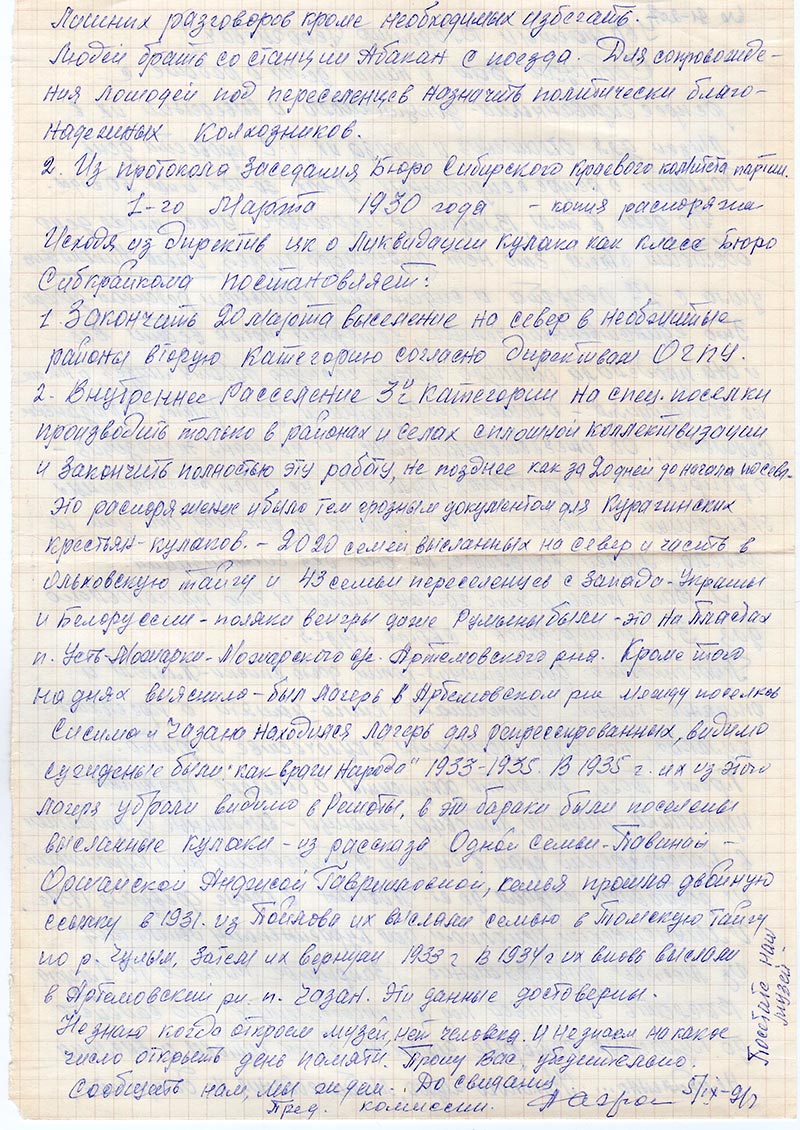 Лишних разговоров кроме необходимых избегать.
Людей брать со станции Абакан с поезда. Для сопровожде-
ния лошадей под переселенцев назначить политически благо-
надежных колхозников.
2. Из протокола заседания Бюро Сибирского краевого комитета партии.
1-го Марта 1930 года - копия распоряже
Исходя из директив цк о ликвидации кулака как класс Бюро
Сибкрайкома постановляет:
1. Закончить 20 марта выселение на север в необжитые
районы вторую категорию согласно директивам ОГПУ.
2. Внутреннее Расселение 3й категории на спец. поселки
производить только в районах и селах сплошной коллективизации
и закончить полностью эту работу, не позднее как за 20 дней до начала посева.
это распоряжение и было тем грозным документом для Курагинских
крестьян-кулаков. - 2020 семей высланных на север и часть в
Ольховскую тайгу и 43 семьи переселенцев с Запада-Украины
и Белоруссии - поляки венгры даже Румыны были - это на
п. Усть-Можарки-Можарского с/с. Артемовского рна. Кроме того
на днях выяснила - был лагерь в Артемовском рне между поселков
Сисима и Чазана находился лагерь для репрессированных, видимо
были "как враги народа" 1933-1935. В 1935 г. их из этого
лагеря убрали видимо в, в эти бараки были поселены
высланные кулаки - из рассказа Одной семьи -
Гавриловной, семья прошла двойную
ссылку в 1931. из Пойлова их выслали семью в Томскую тайгу
по р. Чулым, затем их вернули 1933 г В 1934 г их вновь выслали
в Артемовский рн. п. Чазан. Эти данные достоверны.
Не знаю когда откроем музей, нет человека. И не знаем на какое
число открыть день памяти. Прошу Вас, убедительно.
Сообщить нам, мы ждем. - До свидания
Пред. комиссии. 5/IX-91г
Посетите наш
музей -